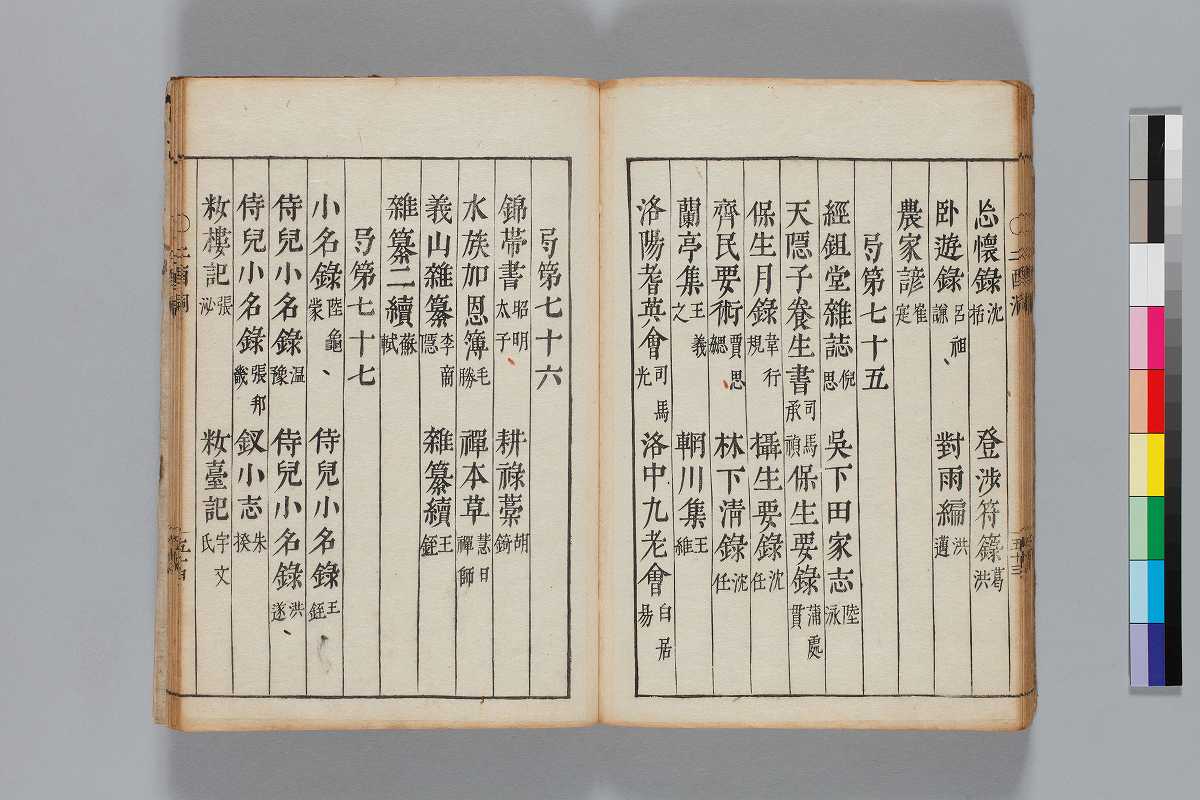 忘懷錄 沈括 登涉符籙 葛洪
卧遊錄 呂祖謙 對雨編 洪邁
農家諺 崔寔
弓第七十五
經鉏堂雜誌 倪思 吳下田家志 陸泳
天隱子養生書 司馬承禎 保生要錄 蒲處貫
保生月錄 韋行規 攝生要錄 沈仕
齊民要術 賈思勰 林下清錄 沈仕
蘭亭集 王羲之 輞川集 王維
洛陽耆英會 司馬光 洛中九老會 白居易
弓第七十六
錦帶書 昭明太子 耕祿藁 胡錡
水族加恩簿 毛勝 禪本草 慧日禪師
義山雜纂 李商隱 雜纂續 王銍
雜纂二續 蘇軾
弓第七十七
小名錄 陸龜蒙 侍兒小名錄 王銍
侍兒小名錄 温豫 侍兒小名錄 洪遂
侍兒小名錄 張邦畿 釵小志 朱揆
妝樓記 張泌 妝臺記 宇文氏